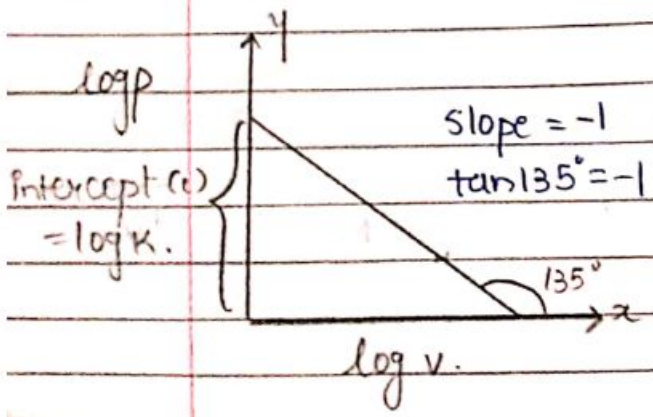 y
logp
slope = -1
tan135° = -1
intercept (c)
= log K.
135°
x
log v.